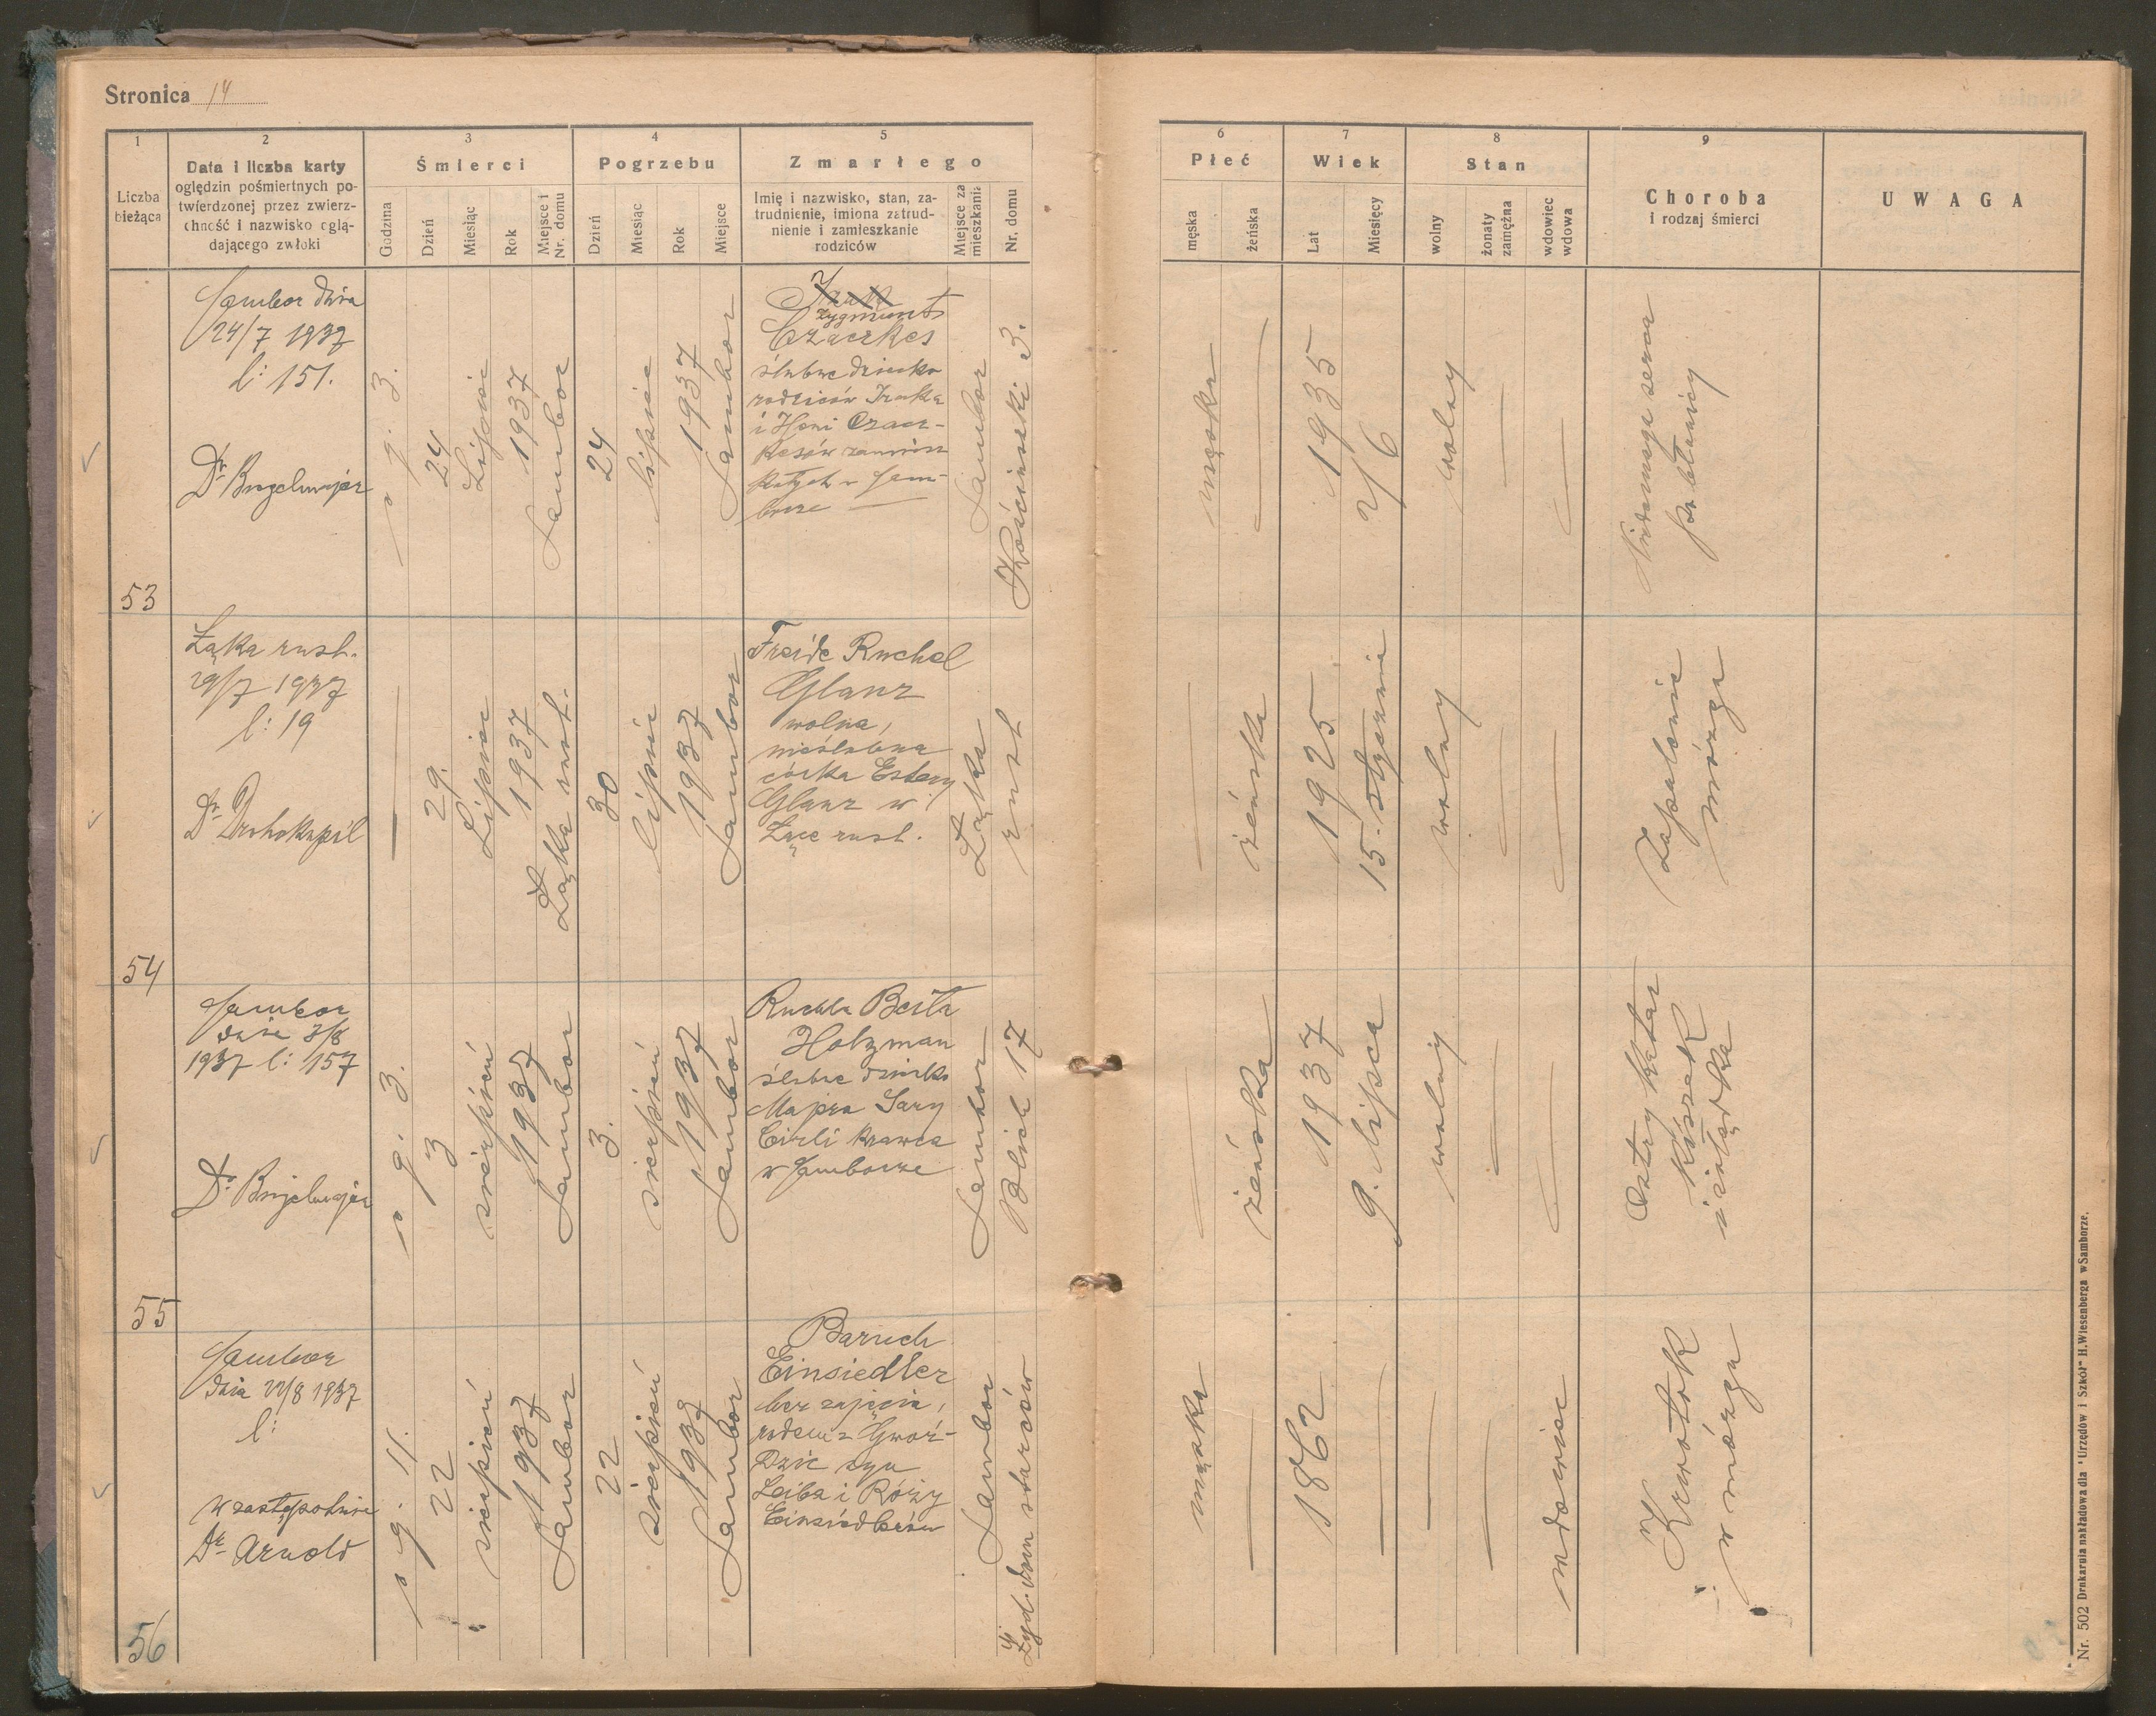 Stronica 14
1
2
3
4
5
Liczba bieżąca
Data i liczba karty
oględzin pośmiertnych po-
twierdzonej przez zwierz-
chność i nazwisko oglą-
dającego zwłoki
Śmierci
Godzina
Dzień
Miesiąc
Rok
Miejsce i Nr. domu
Pogrzebu
Dzień
Miesiąc
Rok
Miejsce
Zmarłego
Imię i nazwisko, stan, za-
trudnienie, imiona zatrud-
nienie i zamieszkanie
rodziców
Miejsce za mieszkania
Nr. domu
6
7
8
9
Płeć
męska
żeńska
Wiek
Lat
Miesięcy
Stan
wolny
żonaty zamężna
wdowiec wdowa
Choroba
i rodzaj śmierci
UWAGA
53
Sambor dnia
24/7 1937
l: 151.
o g. 3.
24
Lipiec
1937
Sambor
24
lipiec
1937
Sambor
Zygmunt
Czaczkes
ślubne dziecko
rodziców Izaka
i Heni Czacz-
kesów zamiesz
kałych w Sam-
borze
Sambor
Kościuszki 3.
męska
1935
2/6
wolny
Niedomoga serca
po błonicy
54
Łąka rust.
29/7 1937
l: 19
29.
Lipiec
1937
Łąka rust.
30
lipiec
1937
Sambor
Freide Ruchel
Glanz
wolna,
nieślubna
córka Estery
Glanz w
Łące rust.
Łąka
rust
żeńska
1925
15. stycznia
wolny
Zapalenie
mózgu
55
Sambor
dnia 3/8
1937 l: 157
o g. 3.
3
sierpień
1937
Sambor
3.
sierpień
1937
Sambor
Ruchla Beila
Holzman
ślubne dziecko
Majera Sary
Cirli krawca
w Samborze
Sambor
Blich 17
żeńska
1937
9. lipca
wolny
Ostry katar
kiszek
i żołądka
56
Sambor
dnia 22/8 1937
l:
w zastępstwie
Dr Arnold
o g. 11.
22
sierpień
1937
Sambor
22
sierpień
1937
Sambor
Baruch
Einsiedler
bez zajęcia,
rodem z Gwoź-
dzic syn
Leiba i Róży
Einsiedlerów
Sambor
Żyd. dom starców
męska
1862
wdowiec
Krwotok
w mózgu
Nr. 502 Drukarnia nakładowa dla "Urzędów i Szkół" H. Wiesenberga w Samborze.